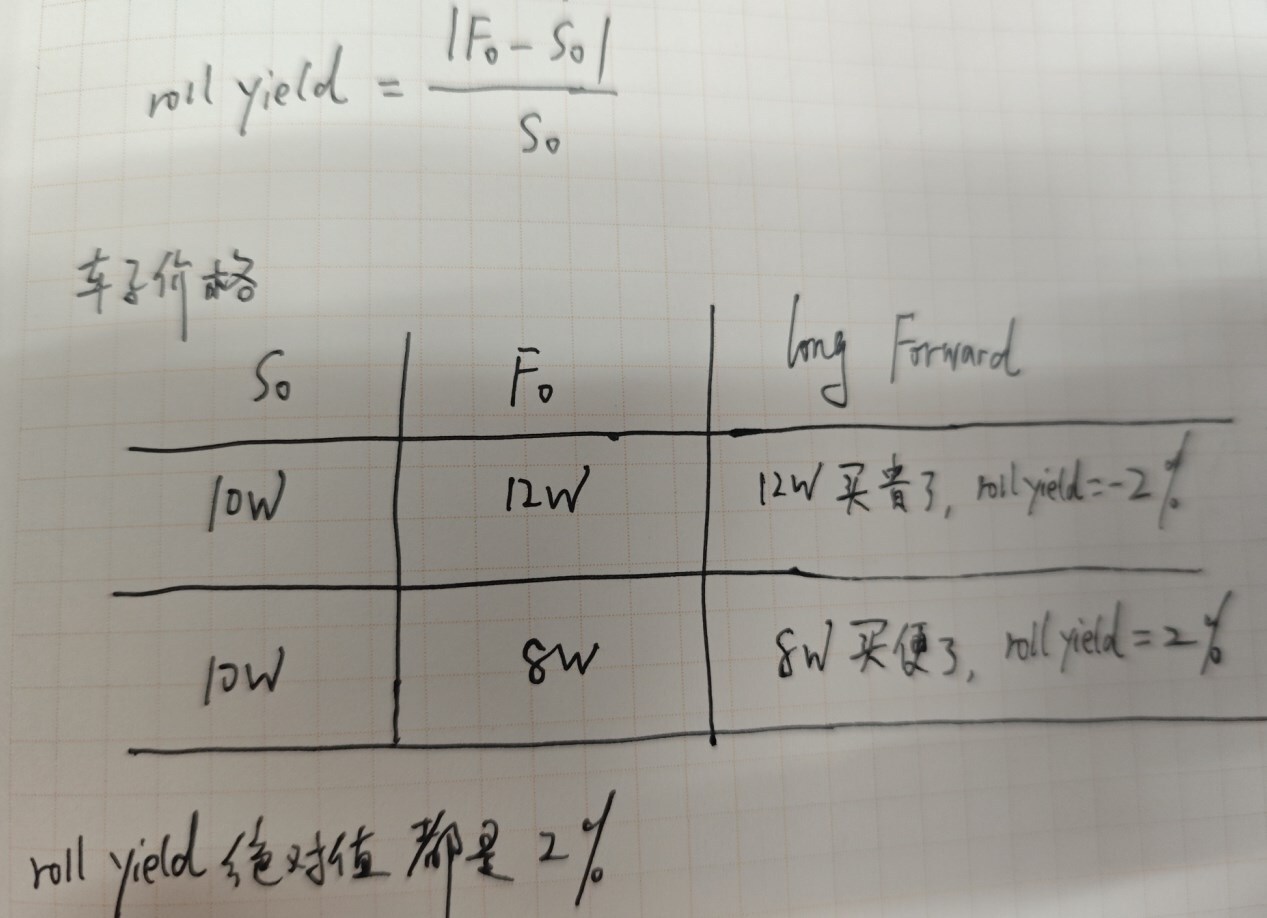 roll yield = |F₀ - S₀| / S₀
车子价格
S₀ F₀ long Forward
10W 12W 12W 买贵了, roll yield = -2%
10W 8W 8W 买便了, roll yield = 2%
roll yield 绝对值 都是 2%